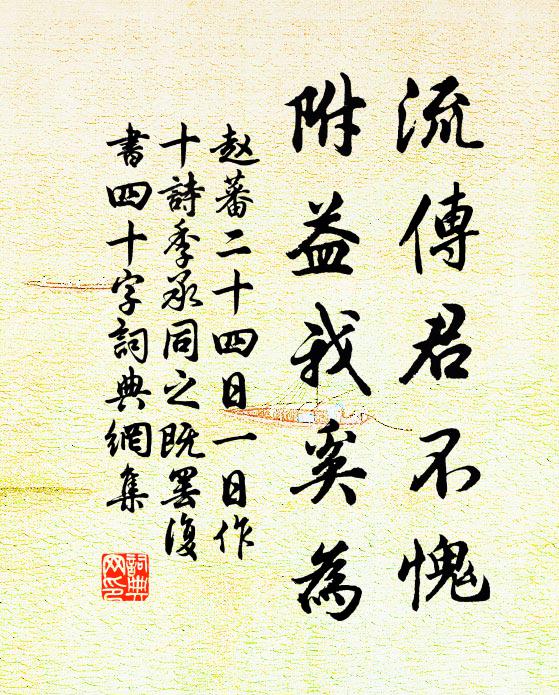 流傳君不愧
附益我奚為
赵蕃二十四日一日作
十詩季承同之既罢復
書四十字詞典網集
詞典
网印